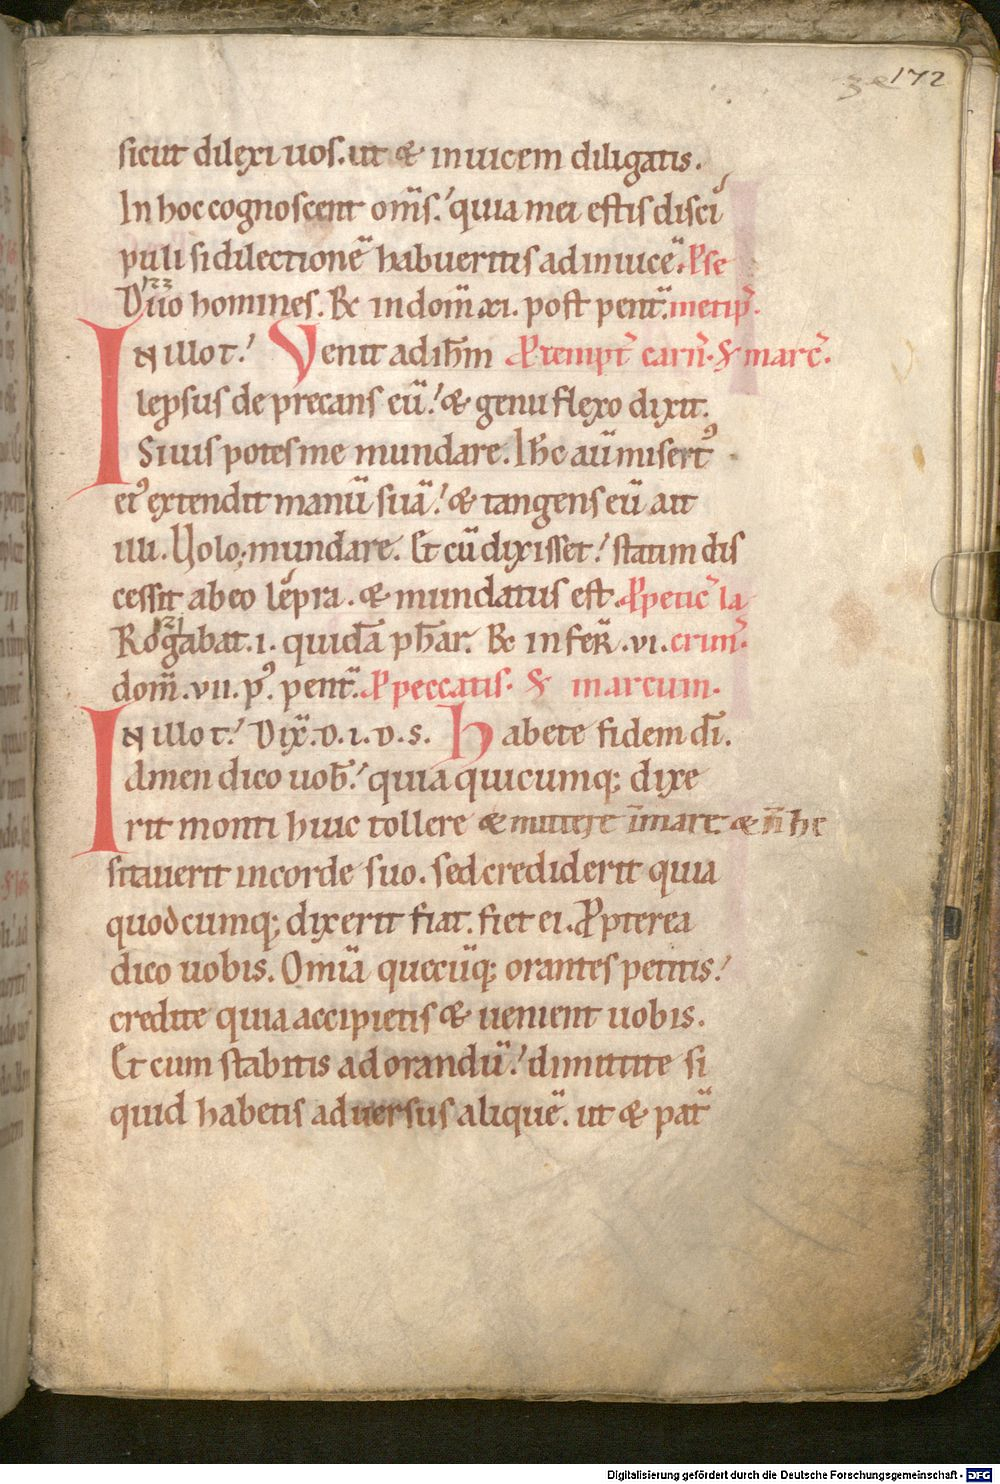 172
sicut dilexi uos. ut & inuicem diligatis.
In hoc cognoscent om̅s. quia mei estis disci
puli si dilectione̅ habueritis adinuice̅. P se
Duo homines. Re in dom̅ xi. post pent̅. metip̅.
In illo t. Venit ad ih̅m P tempt̅ carn̅. & marc̅.
lepsus deprecans eu̅. & genu flexo dixit.
Si uis potes me mundare. Ihc au̅ misert᾽
ei᾽ extendit manu̅ sua̅. & tangens eu̅ ait
illi. Uolo, mundare. Et cu̅ dixisset. statim dis
cessit ab eo lepra. & mundatus est. P petic̅ la
Rogabat. i. quida̅ phar. Re in fer̅. vi. crim̅.
dom̅. vii. p᾽. pent̅. P peccatis. & marcum.
In illo t. Dix̅. d. i. d. s. habete fidem di̅.
Amen dico uob̅. quia quicumq; dixe
rit monti huic tollere & mittere i̅ mare & n̅ he
sitauerit in corde suo. sed crediderit quia
quodcumq; dixerit fiat. fiet ei. Ꝓpterea
dico uobis. Omi̅a quecu̅q; orantes petitis.
credite quia accipietis & uenient uobis.
Et cum stabitis ad orandu̅. dimittite si
quid habetis aduersus alique̅. ut & pat̅
Digitalisierung gefördert durch die Deutsche Forschungsgemeinschaft - DFG